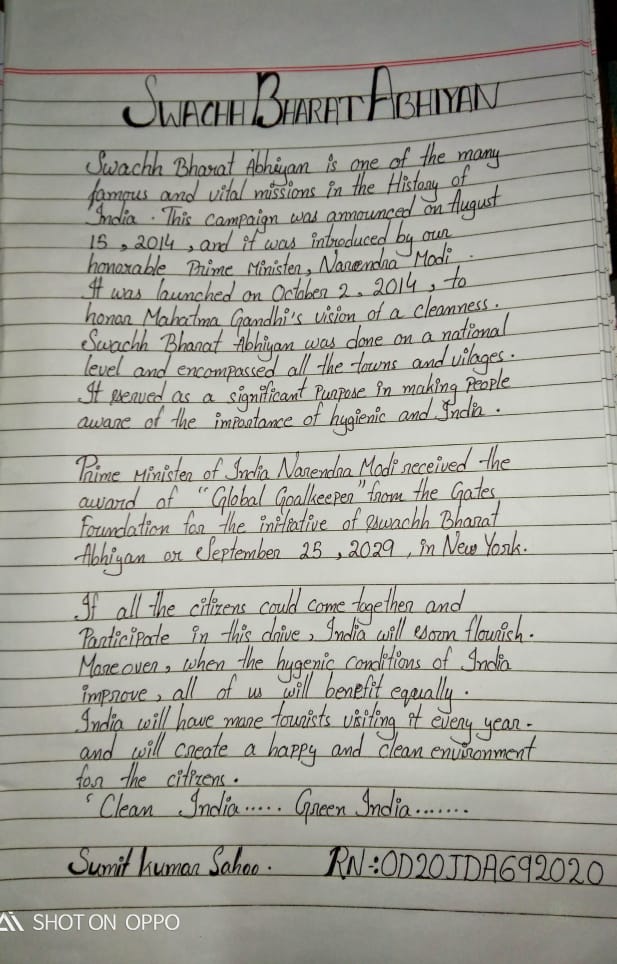 SWACHH BHARAT ABHIYAN
Swachh Bharat Abhiyan is one of the many
famous and vital missions in the History of
India . This campaign was announced on August
15 , 2014 , and it was introduced by our
honorable Prime Minister, Narendra Modi .
It was launched on October 2 , 2014 , to
honar Mahatma Gandhi's vision of a cleanness .
Swachh Bharat Abhiyan was done on a national
level and encompassed all the towns and vilages .
It served as a significant Purpose in making People
aware of the importance of hygienic and India .
Prime Minister of India Narendra Modi received the
award of "Global Goalkeeper" from the Gates
Foundation for the initiative of swachh Bharat
Abhiyan or September 25 , 2029 , in New York.
If all the citizens could come together and
Participate in this drive , India will soon flourish .
Moreover , when the hygenic conditions of India
improve , all of us will benefit equally .
India will have more tourists visiting it every year .
and will create a happy and clean environment
for the citizens .
‘Clean India..... Green India.......
Sumit kumar Sahoo . RN-:OD20JDA692020
SHOT ON OPPO